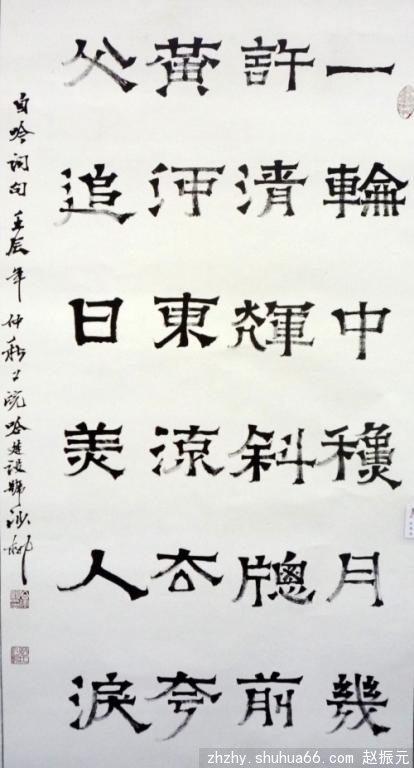 一輪中穐月幾
許清輝斜牕前
黃河東流厺夸
父追日美人淚
自吟詞句 壬辰年仲秋上浣
zhzhy.shuhua66.com 赵振元